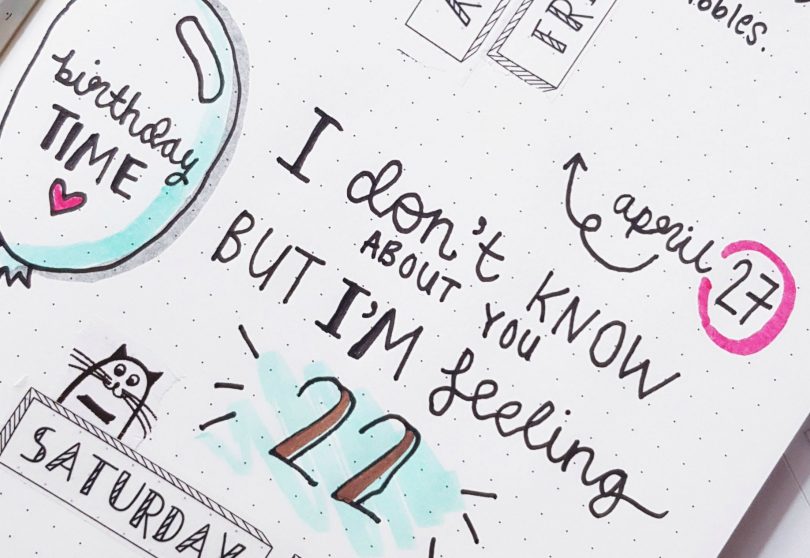 FRI
birthday
TIME
I don't KNOW
ABOUT YOU
BUT I'M feeling
22
april 27
SATURDAY